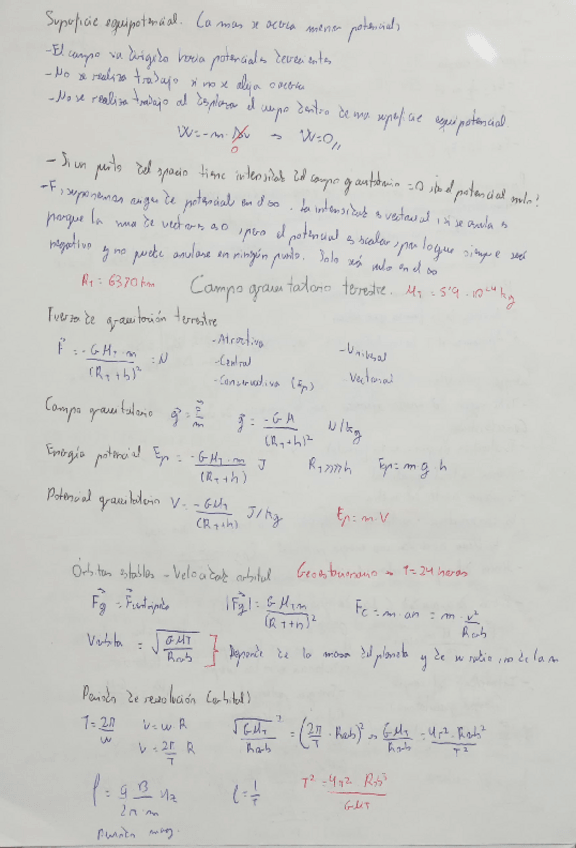 Superficie equipotencial. Ca mas se acerca menor potencial
- El campo va dirigido hacia potenciales decrecientes
- No se realiza trabajo si no se aleja o acerca
- No se realiza trabajo al desplazar el cuerpo dentro de una superficie equipotencial
W = -m · Δv → W = 0,,
0
- Si un punto del espacio tiene intensidad del campo gravitatorio = 0 el potencial nulo?
- F, suponemos origen de potencial en el ∞. La intensidad es vectorial, si se anula es
porque la suma de vectores es 0, pero el potencial es escalar, por lo que siempre será
negativo y no puede anularse en ningún punto. Solo será nulo en el ∞
R_T = 6370 km Campo gravitatorio terrestre. M_T = 5'9 · 10^24 kg
Fuerza de gravitación terrestre
F = -G M_T · m / (R_T + h)^2 = N - Atractiva - Universal
- Central - Vectorial
- Conservativa (Ep)
Campo gravitatorio g = F/m g = -G M / (R_T + h)^2 N/kg
Energía potencial Ep = -G M_T · m / (R_T + h) J R_T >>>> h Ep = m · g · h
Potencial gravitatorio V = -G M_T / (R_T + h) J/kg Ep = m · V
Órbitas estables - Velocidad orbital Geoestacionario → T = 24 horas
Fg = Fcentrípeta |Fg| = G M_T m / (R_T + h)^2 Fc = m · an = m · v^2 / Rorb
Vorbita = √(G M_T / Rorb) } Depende de la masa del planeta y de su radio, no de la m
Periodo de revolución (orbital)
T = 2π/w v = w · R √(G M_T / Rorb)^2 = (2π/T · Rorb)^2 → G M_T / Rorb = 4π^2 · Rorb^2 / T^2
v = 2π/T R
f = 1/T T^2 = 4π^2 · Rorb^3 / G M_T